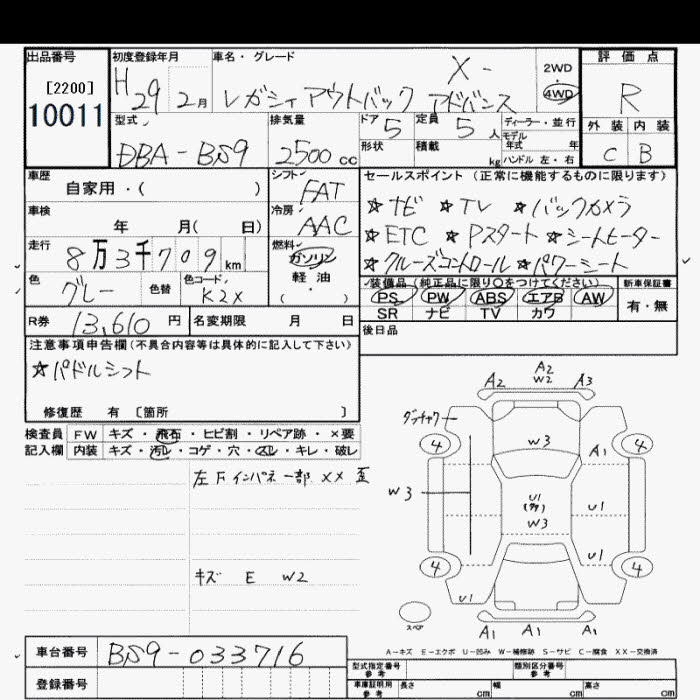 出品番号 初度登録年月 車名・グレード 評価点
[2200] H 29 2月 レガシィ アウトバック X- アドバンス 2WD・4WD R
10011 型式 排気量 ドア 5 定員 5人 ディーラー・並行 外装 内装
DBA-BS9 2500cc 形状 積載 kg モデル年式 年 ハンドル 左・右 C B
車歴 シフト FAT セールスポイント (正常に機能するものに限ります)
自家用・( ) 冷房 AAC ☆ナビ ☆TV ☆バックカメラ
車検 年 月( 日) ☆ETC ☆Pスタート ☆シートヒーター
走行 8万3千709km 燃料 ガソリン・軽油・( ) ☆クルーズコントロール ☆パワーシート
色 グレー 色替 色コード K2X 装備品 (純正品に限り○をつけてください) 新車保証書
PS PW ABS エアB AW 有・無
SR ナビ TV カワ
R券 13,610円 名変期限 月 日 後日品
注意事項申告欄 (不具合内容等は具体的に記入して下さい)
☆パドルシフト
修復歴 有 [箇所 ]
検査員 FW キズ・飛石・ヒビ割・リペア跡・×要
記入欄 内装 キズ・汚レ・コゲ・穴・スレ・キレ・破レ
左Fインパネ一部 XX 歪
キズ E W2
A2 A2 W2 A3
4 W3 4
A1
W3 U1 W3 U1
U1
4 4
U1
スペア A1 A1 A1
A-キズ E-エクボ U-凹み W-補修跡 S-サビ C-腐食 XX-交換済
車台番号 BS9-033716 型式指定番号 参考 類別区分番号 参考
登録番号 車庫証明用 参考 長さ cm 幅 cm 高さ cm